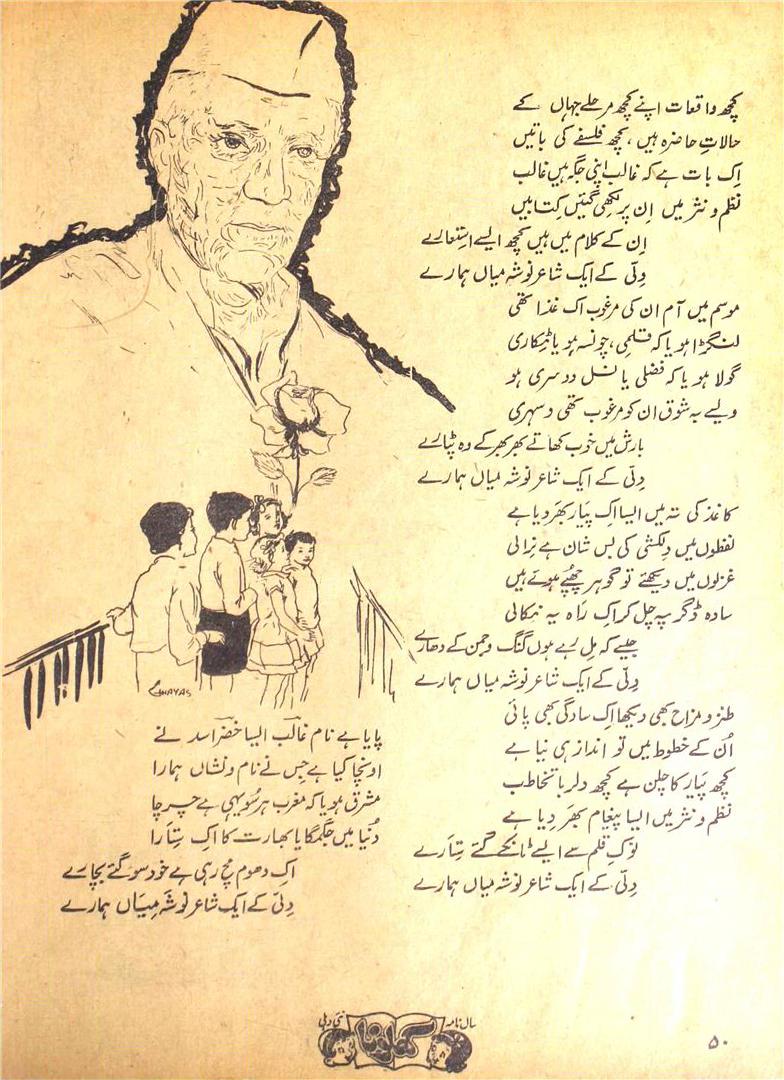 کچھ واقعات اپنے کچھ مرحلے جہاں کے
حالاتِ حاضرہ ہیں، کچھ فلسفے کی باتیں
اِک بات ہے کہ غالب اپنی جگہ ہیں غالب
نظم و نثر میں اِن پر لکھی گئیں کتابیں
اِن کے کلام میں ہیں کچھ ایسے استعارے
دِلّی کے ایک شاعر نوشہ میاں ہمارے
موسم میں آم ان کی مرغوب اک غذا تھی
لنگڑا ہو یا کہ قلمی، چونسہ ہو یا ٹپکاری
گولا ہو یا کہ فضلی یا نسل دوسری ہو
ویسے بہ شوق ان کو مرغوب تھی دسہری
بارش میں خوب کھاتے بھر بھر کے وہ پٹارے
دِلّی کے ایک شاعر نوشہ میاں ہمارے
کاغذ کی تہ میں ایسا اِک پیار بھر دیا ہے
لفظوں میں دِلکشی کی بس شان ہے نِرالی
غزلوں میں دیکھئے تو گوہر چھپے ہوئے ہیں
سادہ ڈگر پہ چل کر اِک راہ یہ نِکالی
جیسے کہ مِل رہے ہوں گنگ و جمن کے دھارے
دِلّی کے ایک شاعر نوشہ میاں ہمارے
طنز و مزاح بھی دیکھا اِک سادگی بھی پائی
اُن کے خطوط میں تو انداز ہی نیا ہے
کچھ پیار کا چلن ہے کچھ دلربا تخاطب
نظم و نثر میں ایسا پیغام بھر دِیا ہے
نوکِ قلم سے ایسے ٹانکے گئے سِتارے
دِلّی کے ایک شاعر نوشہ میاں ہمارے
پایا ہے نام غالب ایسا خضر اسد نے
اونچا کیا ہے جس نے نام و نشاں ہمارا
مشرق ہو یا کہ مغرب ہر سُو یہی ہے چرچا
دُنیا میں جگمگایا بھارت کا اِک سِتارا
اِک دھوم مچ رہی ہے خود سو گئے بچارے
دِلّی کے ایک شاعر نوشہ مِیاں ہمارے
GHAYAS
سال نامہ کھلونا نئی دہلی
۵۰